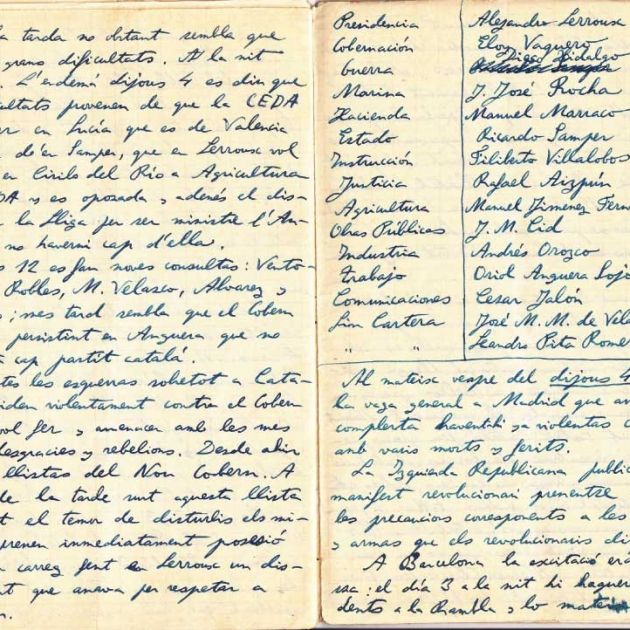 la tarda no obstant sembla que
grans dificultats. A la nit
L'endemá dijous 4 es diu que
ultats provenen de que la CEDA
er en Lucía que es de Valencia
de'en Samper, que en Lerroux vol
en Cirilo del Rio a Agricultura
DA y es oposada y adenés el dis-
la Lliga fer ser ministre l'An-
no haverni cap d'ella.
s 12 es fan noves consultas: Vento-
Robles, M. Velasco, Alvarez y
s; mes tard sembla que el Cobern
persistint en Anguera que no
a cap partit catalá.
tes les esquerras sobetot a Cata-
iden violentament contra el Cobern
vol fer y amenacen amb les mes
desgracies y rebelions. Desde ahir
llistas del Nou Cobern. A
de la tarde surt aquesta llista
t el temor de disturbis els mi-
prenen inmediatament posesió
carrec fent en Lerroux un dis-
nt que anava per respetar a
n.
Presidencia Alejandro Lerroux
Cobernación Eloy Vaquero
Guerra Diego Hidalgo
Marina J. José Rocha
Hacienda Manuel Marraco
Estado Ricardo Samper
Instrucción Filiberto Villalobos
Justicia Rafael Aizpún
Agricultura Manuel Jimenez Fern
Obras Públicas J. M. Cid
Industria Andrés Orozco
Trabajo Oriol Anguera Sojo
Comunicaciones Cesar Jalón
Sin Cartera José M. M. de Vela
" " Leandro Pita Rome
Al mateix vespre del dijous 4
ha vaga general a Madrid que
complerta haventhi ya violentas
amb varis morts y ferits.
La Izquieda Republicana public
manifest revolucionari prenentse
les precaucions corresponents a les
y armas que els revolucionaris di
A Barcelona la excitació erá
sa: el día 3 a la nit hi hagueré
dents a la Rambla y lo mateix